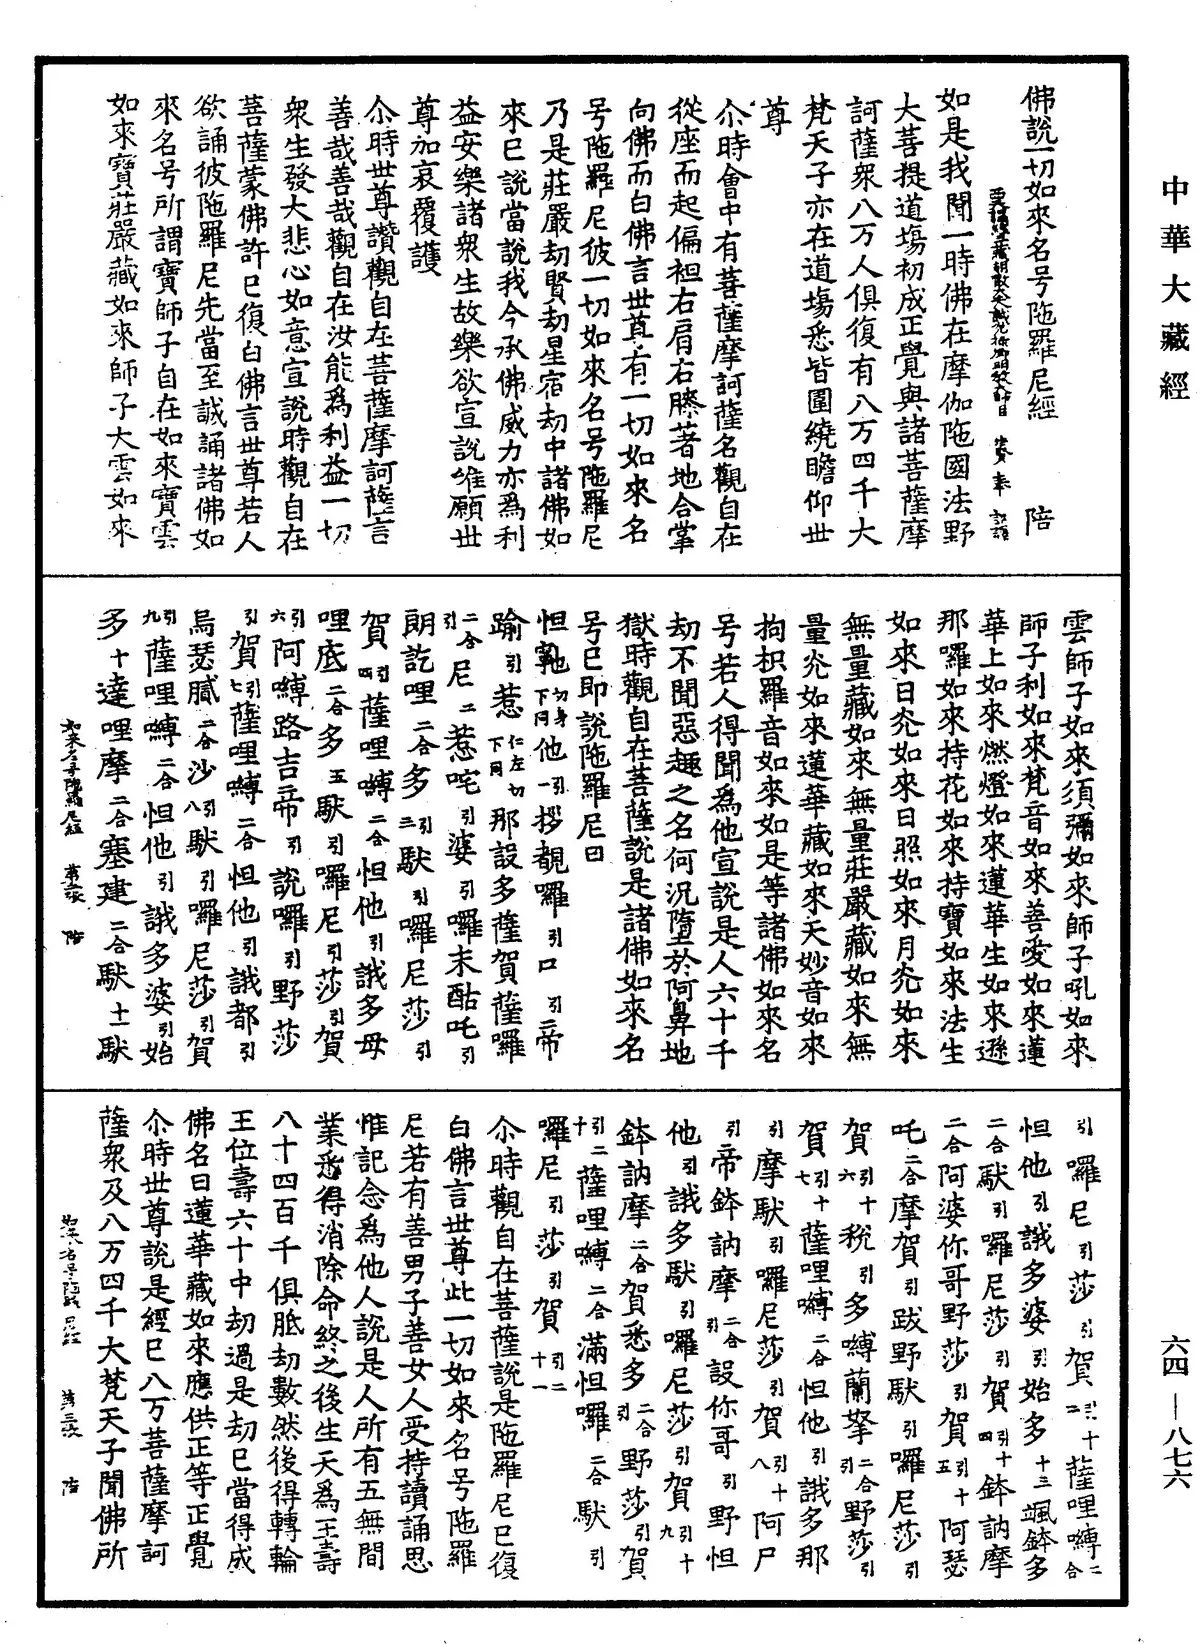 中華大藏經
佛說一切如來名号陁羅尼經 陪
如是我聞一時佛在摩伽陁國法野
大菩提道場初成正覺與諸菩薩摩
訶薩衆八万人俱復有八万四千大
梵天子亦在道場悉皆圍繞瞻仰世
尊
尒時會中有菩薩摩訶薩名觀自在
從座而起偏袒右肩右膝著地合掌
向佛而白佛言世尊有一切如來名
号陁羅尼彼一切如來名号陁羅尼
乃是莊嚴劫賢劫星宿劫中諸佛如
來已說當說我今承佛威力亦爲利
益安樂諸衆生故樂欲宣說唯願世
尊加哀覆護
尒時世尊讚觀自在菩薩摩訶薩言
善哉善哉觀自在汝能爲利益一切
衆生發大悲心如意宣說時觀自在
菩薩蒙佛許已復白佛言世尊若人
欲誦彼陁羅尼先當至誠誦諸佛如
來名号所謂寶師子自在如來寶雲
如來寶莊嚴藏如來師子大雲如來
雲師子如來須彌如來師子吼如來
師子利如來梵音如來善愛如來蓮
華上如來燃燈如來蓮華生如來遜
那囉如來持花如來持寶如來法生
如來日光如來日照如來月光如來
無量藏如來無量莊嚴藏如來無
量光如來蓮華藏如來天妙音如來
拘枳羅音如來如是等諸佛如來名
号若人得聞爲他宣說是人六十千
劫不聞惡趣之名何況墮於阿鼻地
獄時觀自在菩薩說是諸佛如來名
号已即說陁羅尼曰
怛寧也切身下同他一引拶覩囉引口引帝
踰引惹仁左切下同那設多薩賀薩囉
二合引尼二惹咤引婆引囉末酤吒引
朗訖哩二合多三引馱引囉尼莎引
賀四引薩哩嚩二合怛他引誐多母
哩底二合多五馱引囉尼引莎引賀
六引阿嚩路吉帝引說囉引野莎
引賀七引薩哩嚩二合怛他引誐都引
烏瑟膩二合沙八引馱引囉尼莎引賀
九引薩哩嚩二合怛他引誐多婆引始
多十達哩摩二合塞建二合馱十一馱
如來名号陁羅尼經 第二張 陪
引囉尼引莎引賀引十二薩哩嚩二合
怛他引誐多婆引始多十三颯鉢多
二合馱引囉尼莎引賀引十四鉢訥摩
二合阿婆你哥野莎引賀引十五阿瑟
吒二合摩賀引跋野馱引囉尼莎引
賀引十六税引多嚩蘭拏引二合野莎引
賀引十七薩哩嚩二合怛他引誐多那
引摩馱引囉尼莎引賀引十八阿尸
引帝鉢訥摩二合引設你哥引野怛
他引誐多馱引囉尼莎引賀引十九
鉢訥摩二合賀悉多二合引野莎引賀
引二十薩哩嚩二合滿怛囉二合馱引
囉尼引莎引賀引二十一
尒時觀自在菩薩說是陁羅尼已復
白佛言世尊此一切如來名号陁羅
尼若有善男子善女人受持讀誦思
惟記念爲他人說是人所有五無間
業悉得消除命終之後生天爲王壽
八十四百千俱胝劫數然後得轉輪
王位壽六十中劫過是劫已當得成
佛名曰蓮華藏如來應供正等正覺
尒時世尊說是經已八万菩薩摩訶
薩衆及八万四千大梵天子聞佛所
如來名号陁羅尼經 第三張 陪
六四—八七六